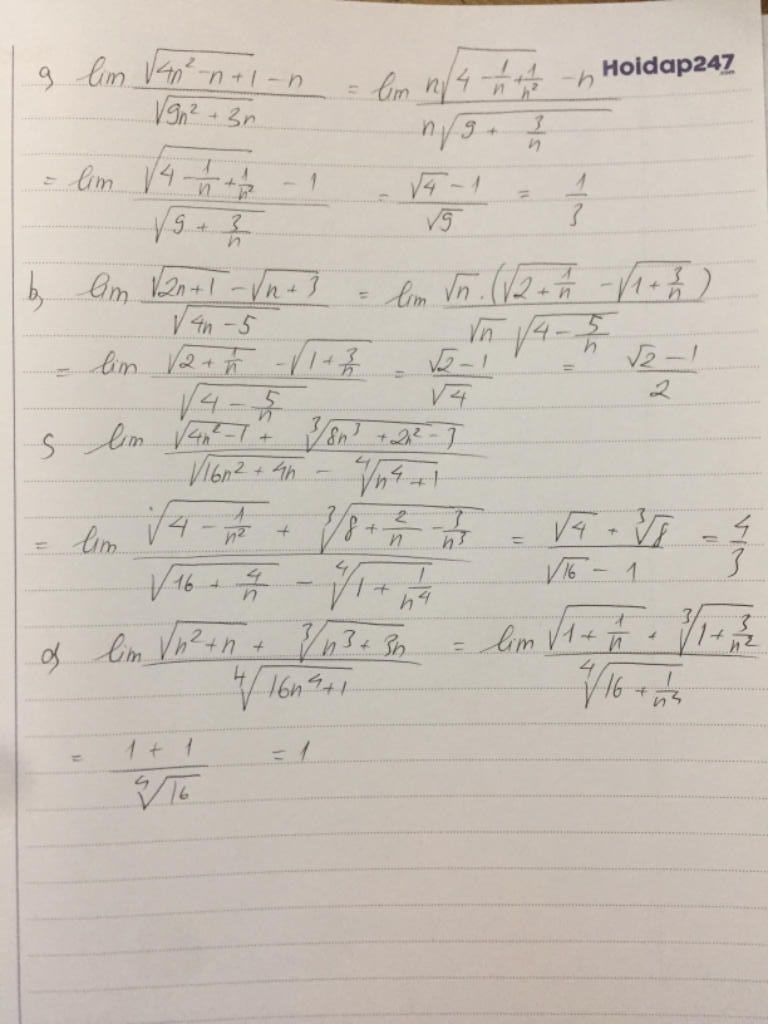 Hoidap247.com
a, lim (√(4n² - n + 1) - n) / √(9n² + 3n) = lim (n√(4 - 1/n + 1/n²) - n) / (n√(9 + 3/n))
= lim (√(4 - 1/n + 1/n²) - 1) / √(9 + 3/n) = (√4 - 1) / √9 = 1/3
b, lim (√(2n + 1) - √(n + 3)) / √(4n - 5) = lim (√n . (√(2 + 1/n) - √(1 + 3/n))) / (√n √(4 - 5/n))
= lim (√(2 + 1/n) - √(1 + 3/n)) / √(4 - 5/n) = (√2 - 1) / √4 = (√2 - 1) / 2
c, lim (√(4n² - 1) + ∛(8n³ + 2n² - 3)) / (√(16n² + 4n) - ∜(n⁴ + 1))
= lim (√(4 - 1/n²) + ∛(8 + 2/n - 3/n³)) / (√(16 + 4/n) - ∜(1 + 1/n⁴)) = (√4 + ∛8) / (√16 - 1) = 4/3
d, lim (√(n² + n) + ∛(n³ + 3n)) / ∜(16n⁴ + 1) = lim (√(1 + 1/n) + ∛(1 + 3/n²)) / ∜(16 + 1/n⁴)
= (1 + 1) / ∜16 = 1